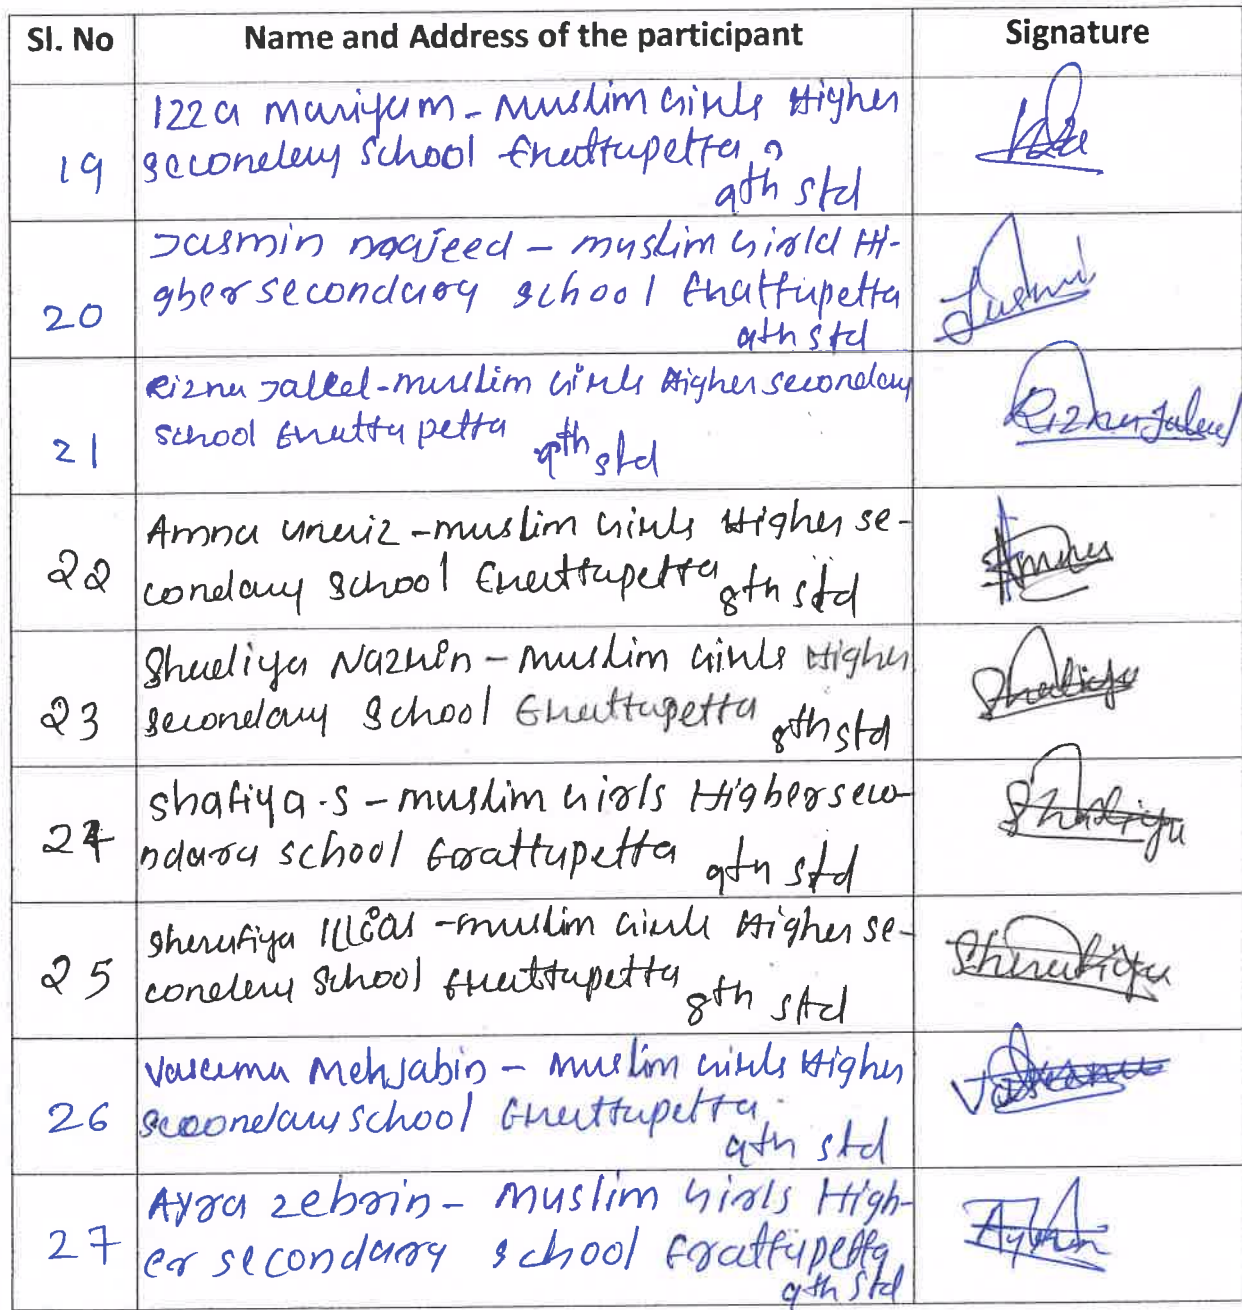 Sl. No Name and Address of the participant Signature
19
Izza Mariyam - Muslim Girls Higher
secondary School Erattupetta,
9th std
Izza
20
Jasmin Majeed - Muslim Girls Hi-
gher secondary school Erattupetta
9th std
Jasmin
21
Rizna Jaleel - Muslim Girls Higher secondary
school Erattupetta 9th std
Rizna Jaleel
22
Amna - Muslim Girls Higher se-
condary School Erattupetta 8th std
Amna
23
Nazrin - Muslim Girls Higher
secondary School Erattupetta 8th std
24
Shafiya.S - Muslim Girls Higher seco-
ndary school Erattupetta 9th std
Shafiya
25
- Muslim Girls Higher se-
condary School Erattupetta 8th std
26
Vaseema Mehjabin - Muslim Girls Higher
secoondary school Erattupetta
9th std
Vaseema
27
Ayra Zebrin - Muslim Girls High-
er secondary school Erattupetta
9th std